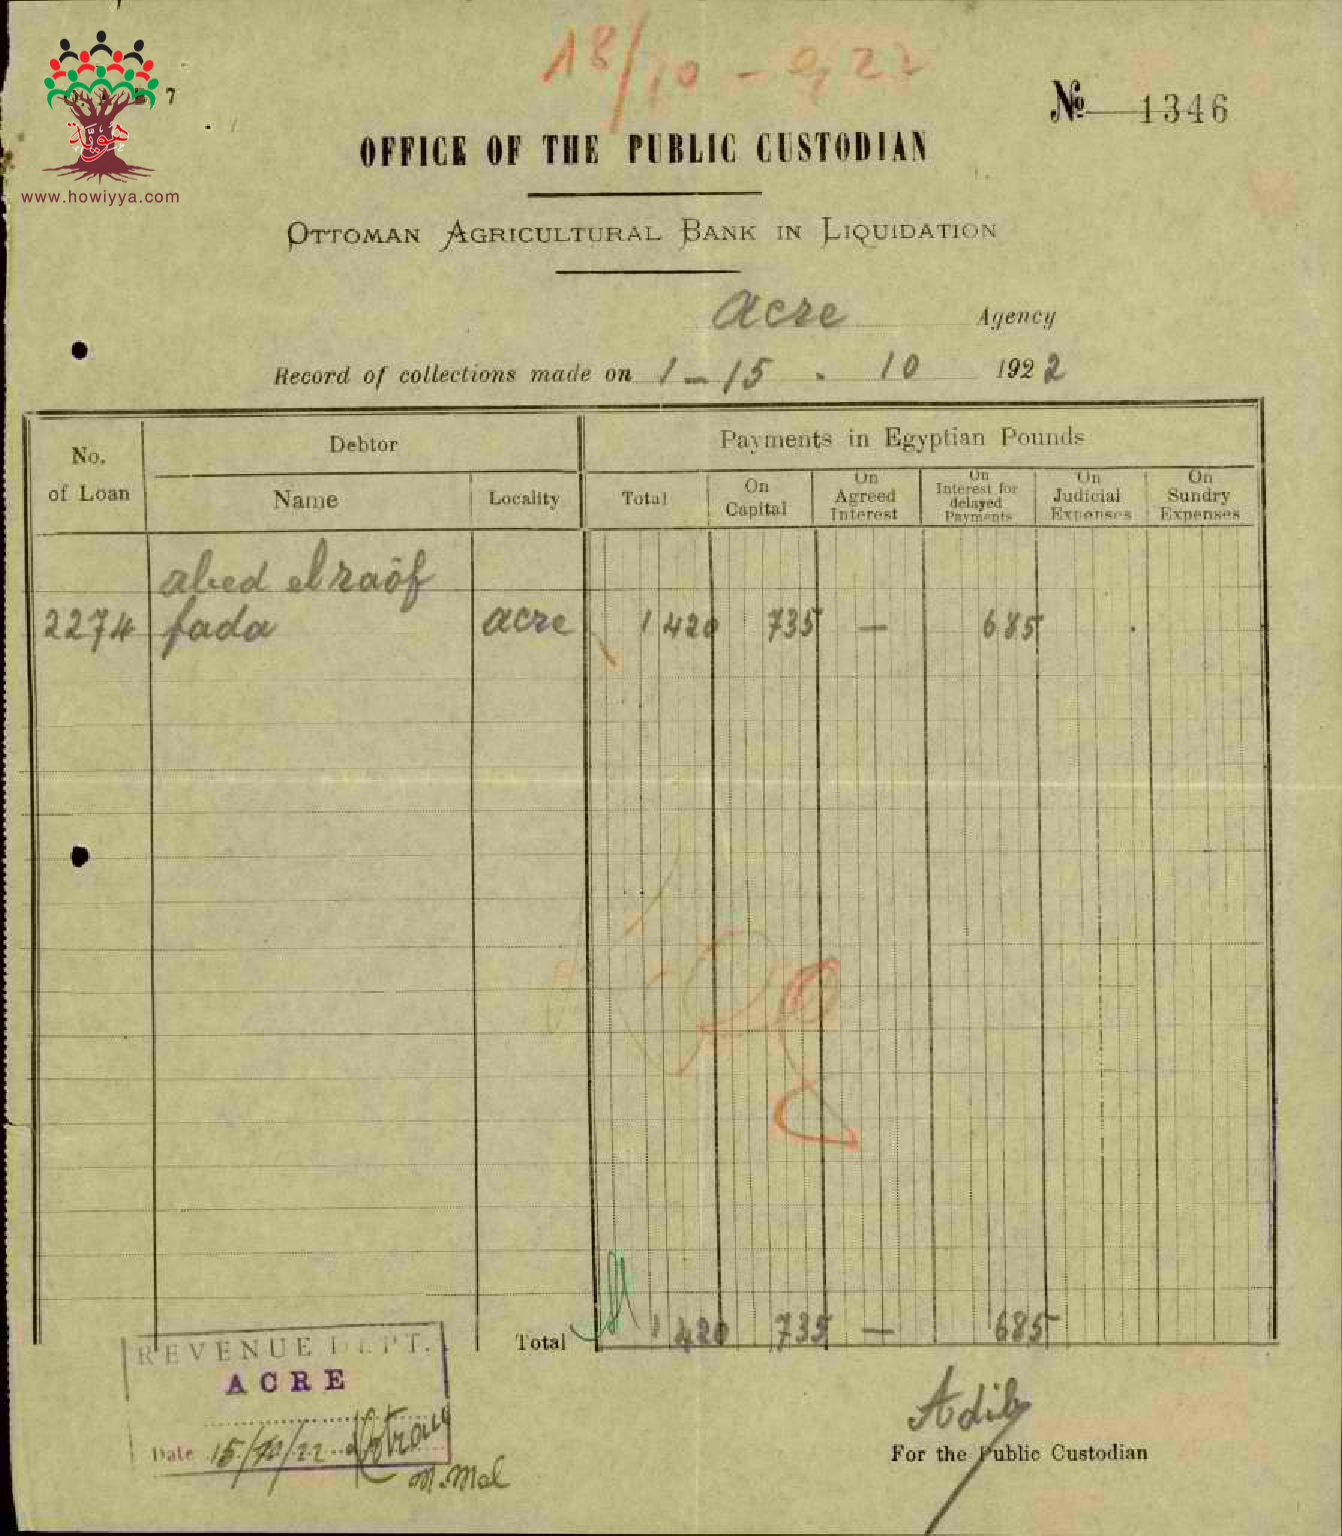 18/10-9,22
7
№ 1346
هوية
www.howiyya.com
OFFICE OF THE PUBLIC CUSTODIAN
OTTOMAN AGRICULTURAL BANK IN LIQUIDATION
acre Agency
Record of collections made on 1-15 . 10 1922
No. of Loan
Debtor
Payments in Egyptian Pounds
Name
Locality
Total
On Capital
On Agreed Interest
On Interest for delayed Payments
On Judicial Expenses
On Sundry Expenses
abed el raôf
2274 fada acre 1 420 735 — 685
Total 1 420 735 — 685
REVENUE DEPT.
ACRE
Date 15/10/22
Adib
For the Public Custodian